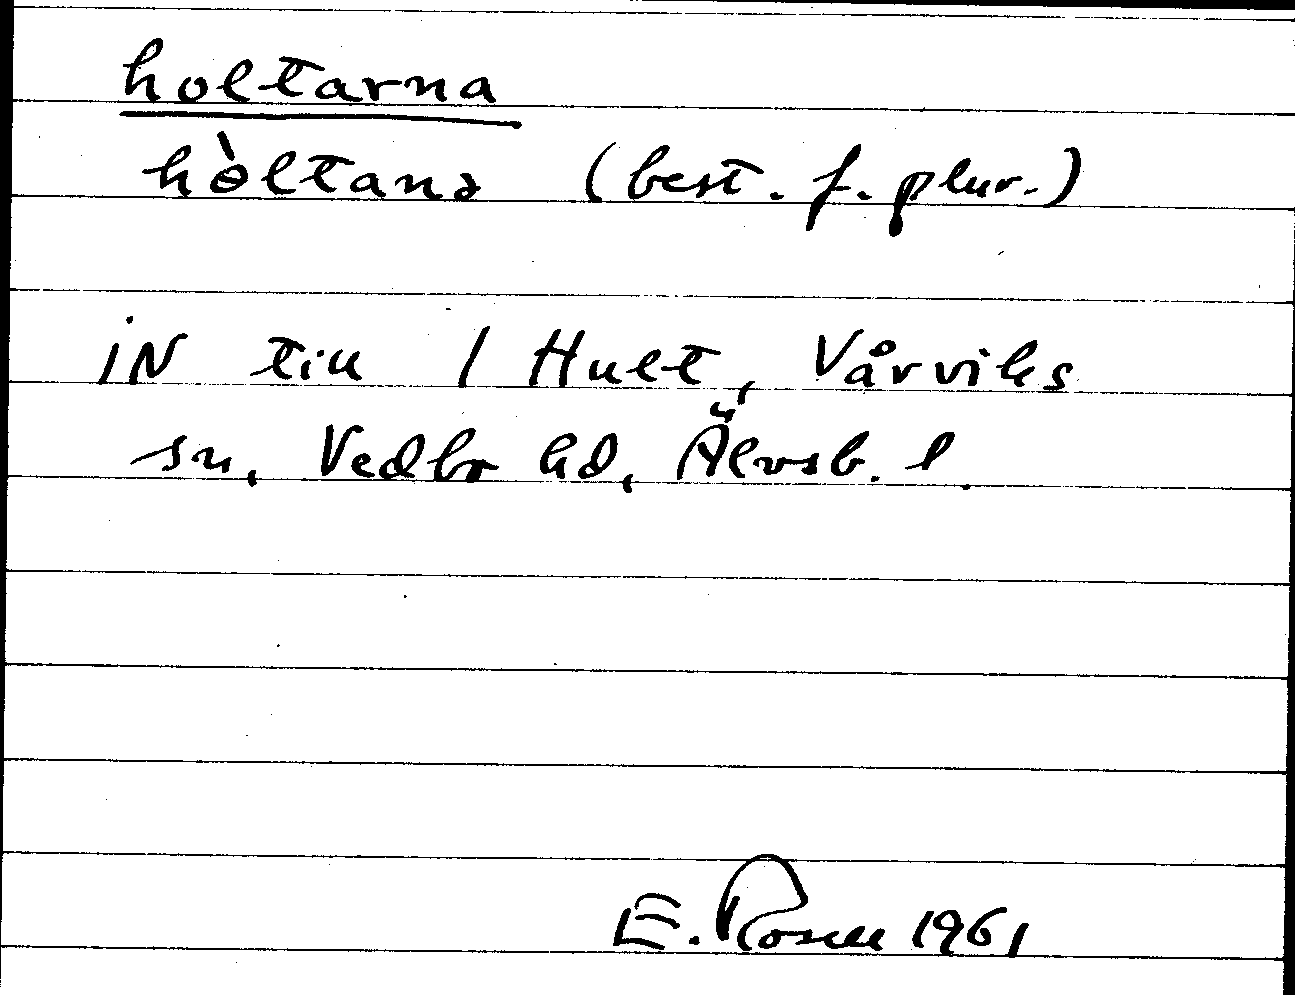 holtarna
hòltanə (best. f. plur.)
iN till 1 Hult, Vårviks
sn, Vedbo hd, Älvsb. l.
E. Rosell 1961